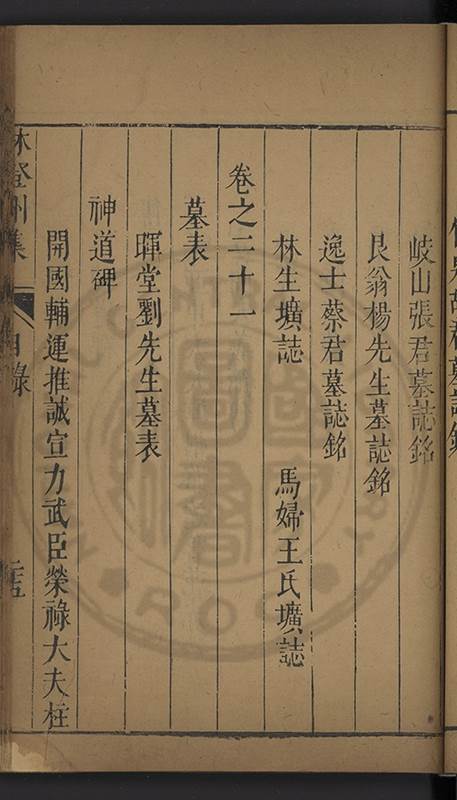 岐山張君墓誌銘
艮翁楊先生墓誌銘
逸士蔡君墓誌銘
林生壙誌　馬婦王氏壙誌
卷之二十一
墓表
暉堂劉先生墓表
神道碑
開國輔運推誠宣力武臣榮祿大夫柱
林登州集　目錄